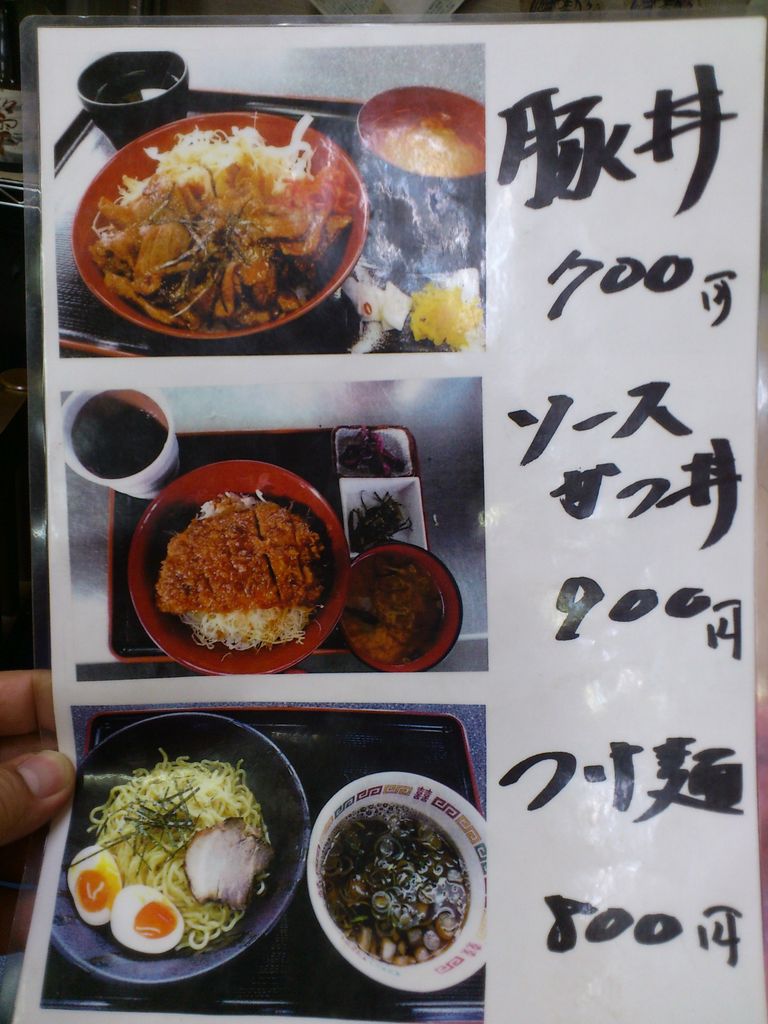 豚丼
700円
ソース
かつ丼
900円
つけ麺
800円